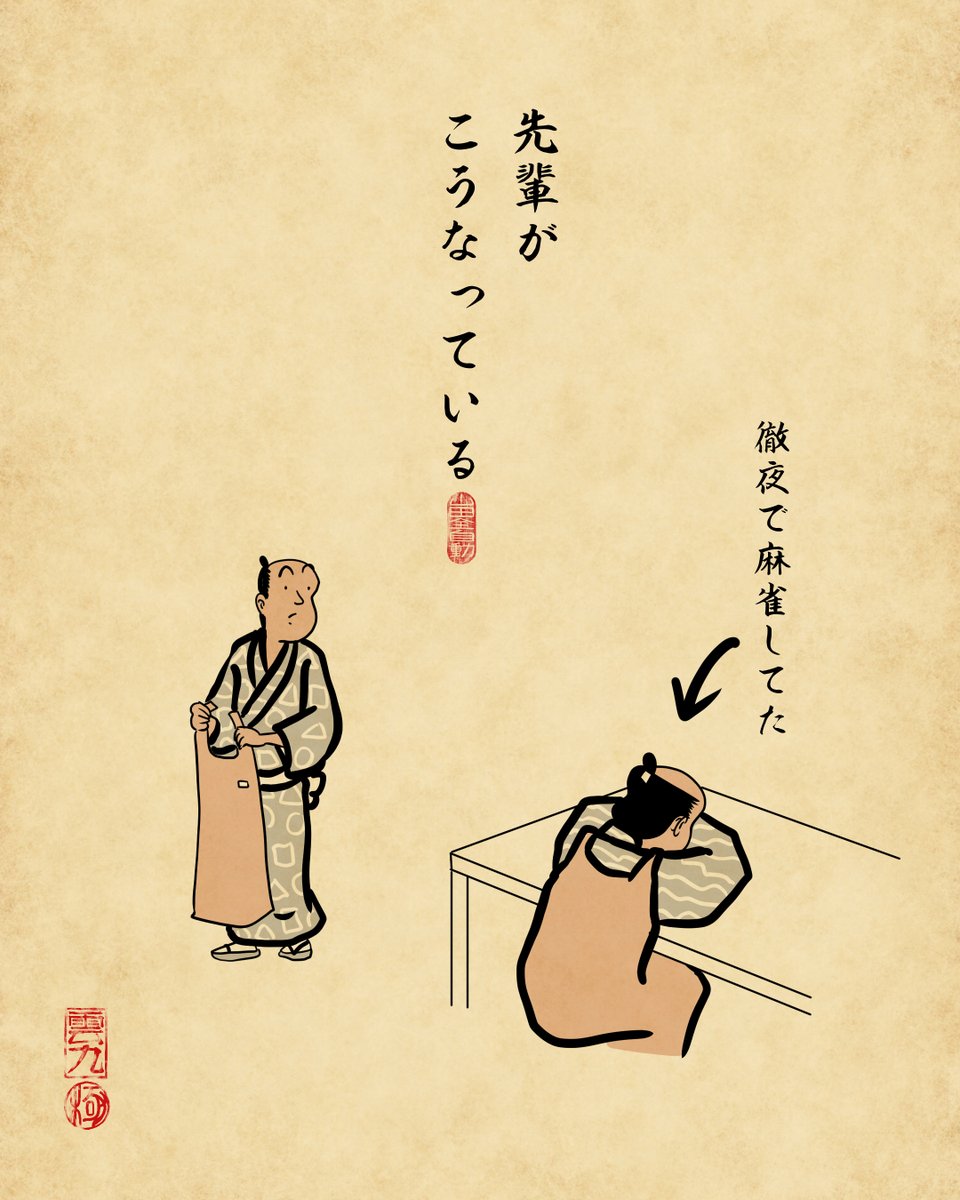 先輩が
こうなっている
徹夜で麻雀してた